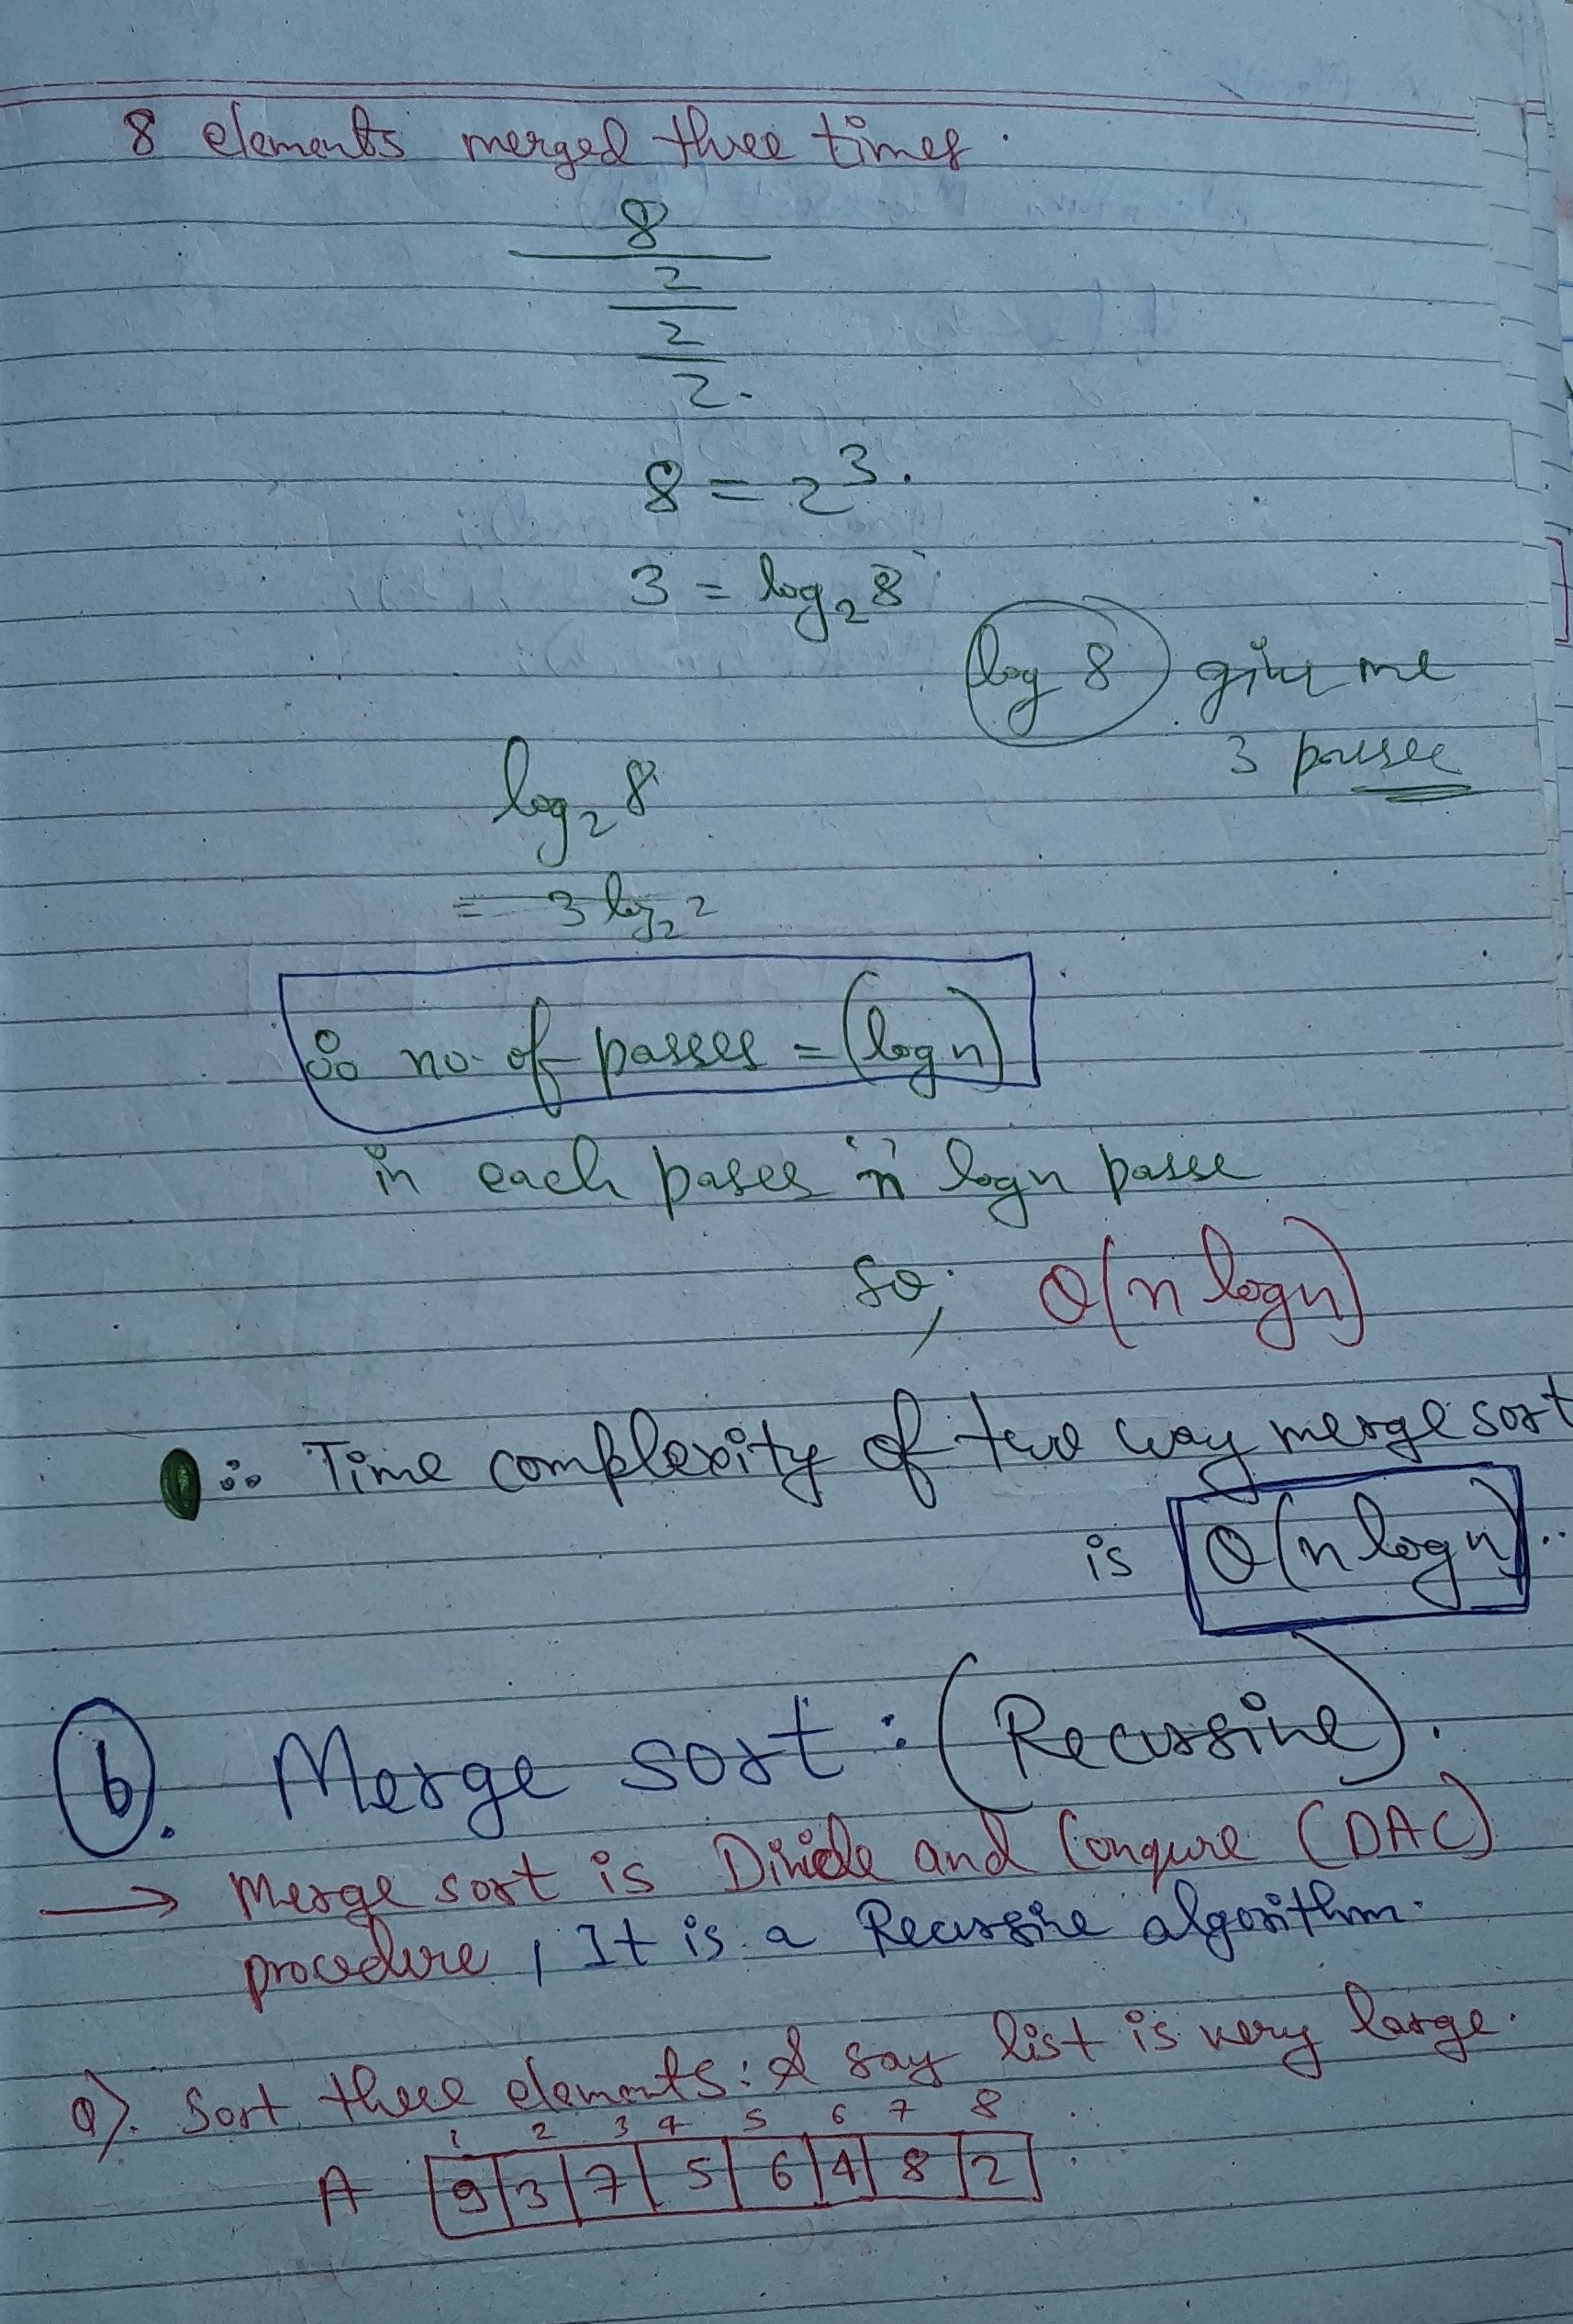 8 elements merged three times.
8
2
2
2.
8 = 2³.
3 = log₂ 8
log 8 give me
3 passes
log₂ 8
= 3 log₂ 2
∴ no. of passes = (log n)
in each passes 'n' log n passe
so, θ(n log n)
∴ Time complexity of two way merge sort
is θ(n log n)..
b. Merge sort : (Recursive).
→ Merge sort is Divide and Conqure (DAC)
procedure, It is a Recursive algorithm.
Q). Sort these elements: & say list is very large.
1 2 3 4 5 6 7 8
A 9 3 7 5 6 4 8 2